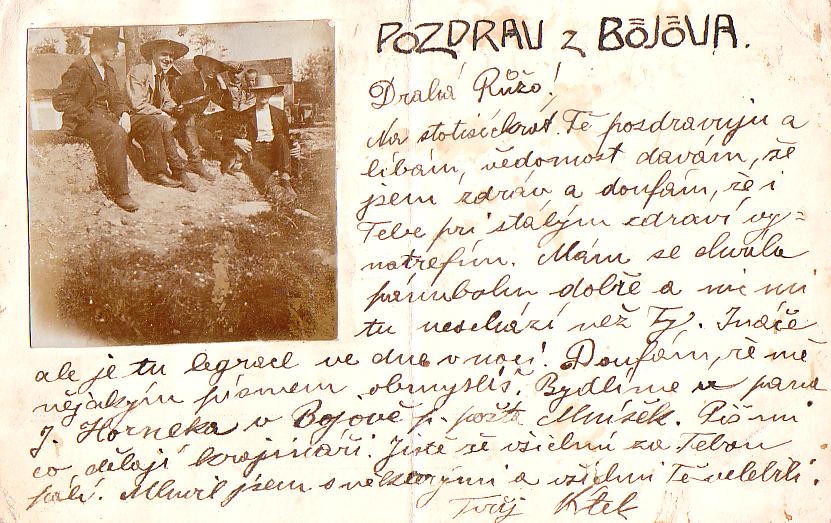 POZDRAV z BOJOVA.
Drahá Růžo!
Na stotisíckrát Tě pozdravuju a
líbám, vědomost dávám, že
jsem zdráv a doufám, že i
Tebe při stálým zdraví vy=
natrefím. Mám se chvála
pámbohu dobře a nic mi
tu neschází než Ty. Ináče
ale je tu legrace ve dne v noci! Doufám, že mě
nějakým písmem obmyslíš. Bydlíme u pana
J. Horneka v Bojově p. pošta Mníšek. Piš mi
co dělají krajináři. Jistě že všichni za Tebou
pálí. Mluvil jsem s některými a všichni Tě velebili.
Tvůj